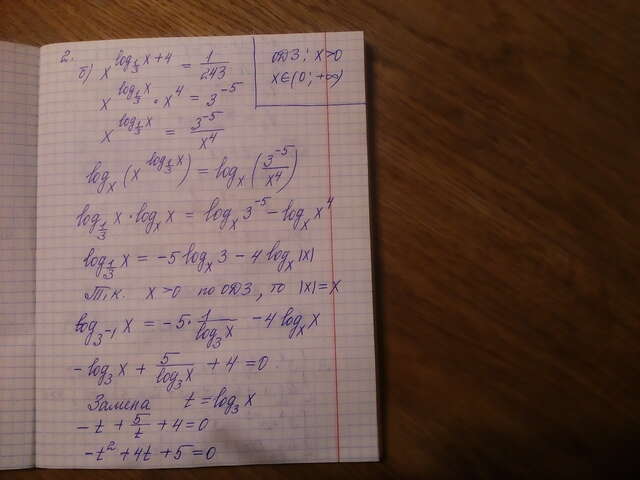 2.
б) x^(log_(1/3) x + 4) = 1/243
ОДЗ: x>0
x∈(0; +∞)
x^(log_(1/3) x) · x^4 = 3^(-5)
x^(log_(1/3) x) = 3^(-5)/x^4
log_x (x^(log_(1/3) x)) = log_x (3^(-5)/x^4)
log_(1/3) x · log_x x = log_x 3^(-5) - log_x x^4
log_(1/3) x = -5 log_x 3 - 4 log_x |x|
Т.к. x>0 по ОДЗ, то |x| = x
log_(3^(-1)) x = -5 · 1/(log_3 x) - 4 log_x x
-log_3 x + 5/(log_3 x) + 4 = 0
Замена t = log_3 x
-t + 5/t + 4 = 0
-t² + 4t + 5 = 0